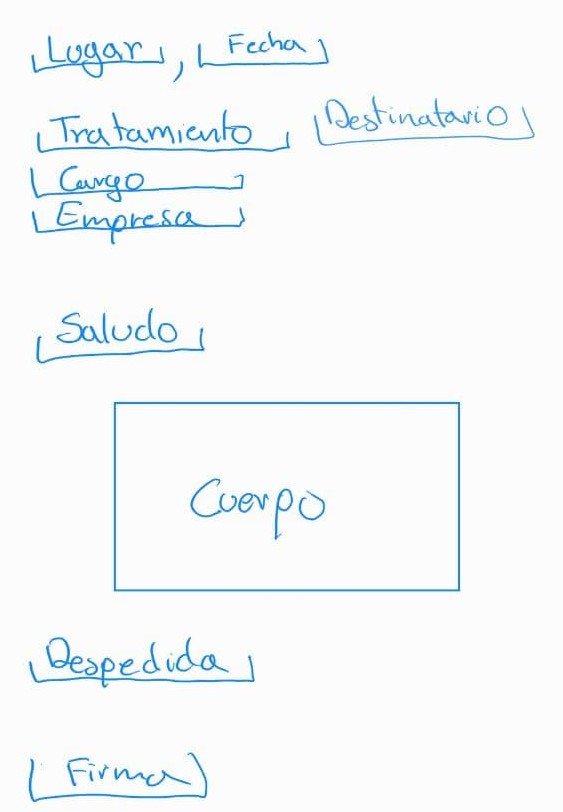 Lugar, Fecha
Tratamiento Destinatario
Cargo
Empresa
Saludo
Cuerpo
Despedida
Firma